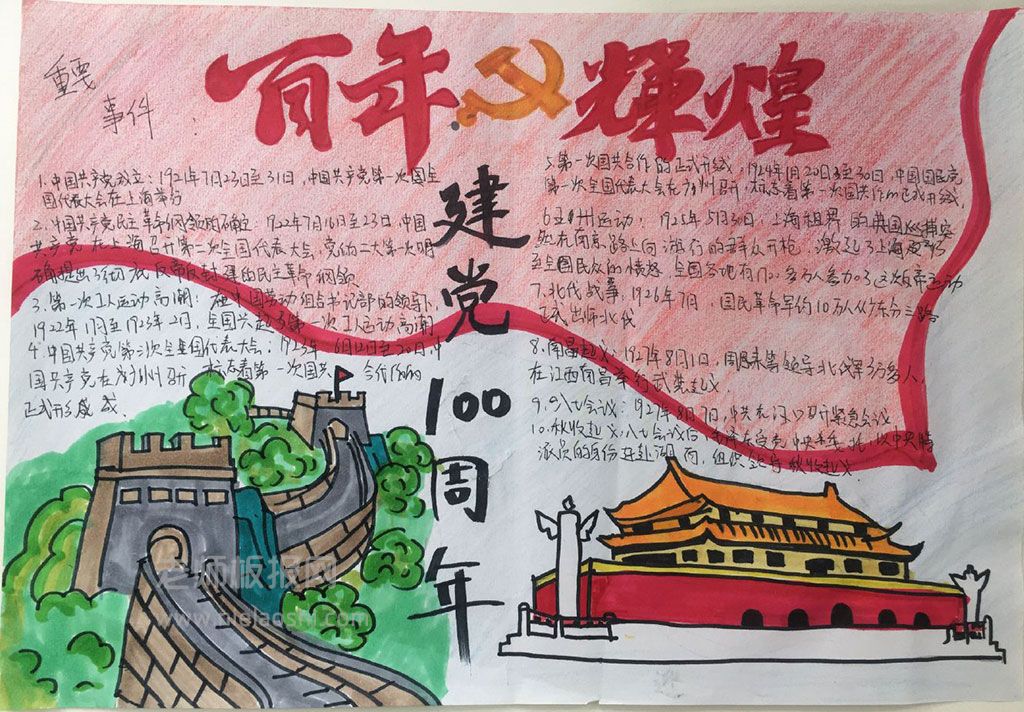 百年辉煌
重要
事件
建党100周年
1.中国共产党成立：1921年7月23日至31日，中国共产党第一次国全
国代表大会在上海举行
2.中国共产党民主革命纲领的确定：1922年7月16日至23日，中国
共产党在上海召开第二次全国代表大会，党的二大第一次明
确提出了彻底反帝反封建的民主革命纲领
3.第一次工人运动高潮：在中国劳动组合书记部的领导下，
1922年1月至1923年2月，全国兴起了第一次工人运动高潮
4.中国共产党第三次全国代表大会：1923年6月12日至20日，中
国共产党在广州召开，标志着第一次国共合作的
正式开始
5.第一次国共合作的正式开始，1924年1月20日至30日，中国国民党
第一次全国代表大会在广州召开，标志着第一次国共合作的正式开始，
6.五卅州运动：1925年5月30日，上海租界的英国巡捕突
然在南京路上向游行的群众开枪，激起了上海
至全国民众的愤怒，全国各地有万多人参加了这次反帝运动
7.北伐战争，1926年7月，国民革命军约10万人从广东分三路
正式出师北伐
8.南昌起义：1927年8月1日，周恩来等领导北伐军3万多人，
在江西南昌举行武装起义
9.八七会议：1927年8月7日，中共在汉口召开紧急会议
10.秋收起义，八七会议后，毛泽东以中央特
派员的身份赴湖南，组织领导秋收起义
老师板报网
www.qielaoshi.com